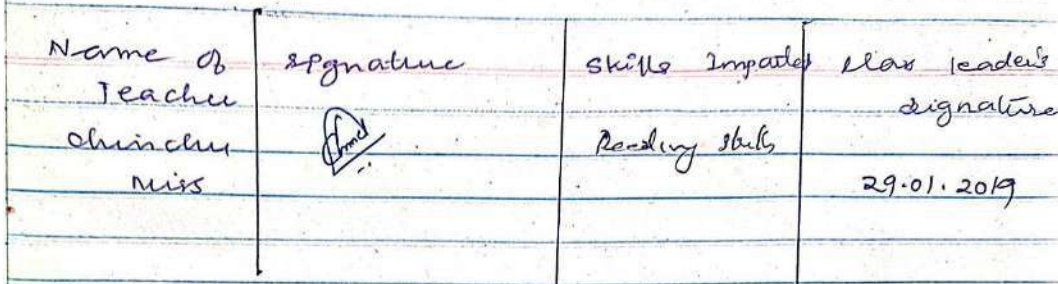 Name of Teacher | Signature | Skills Imparted | Class leader's signature
Chinchu Miss | | Reading Skills | 29.01.2019